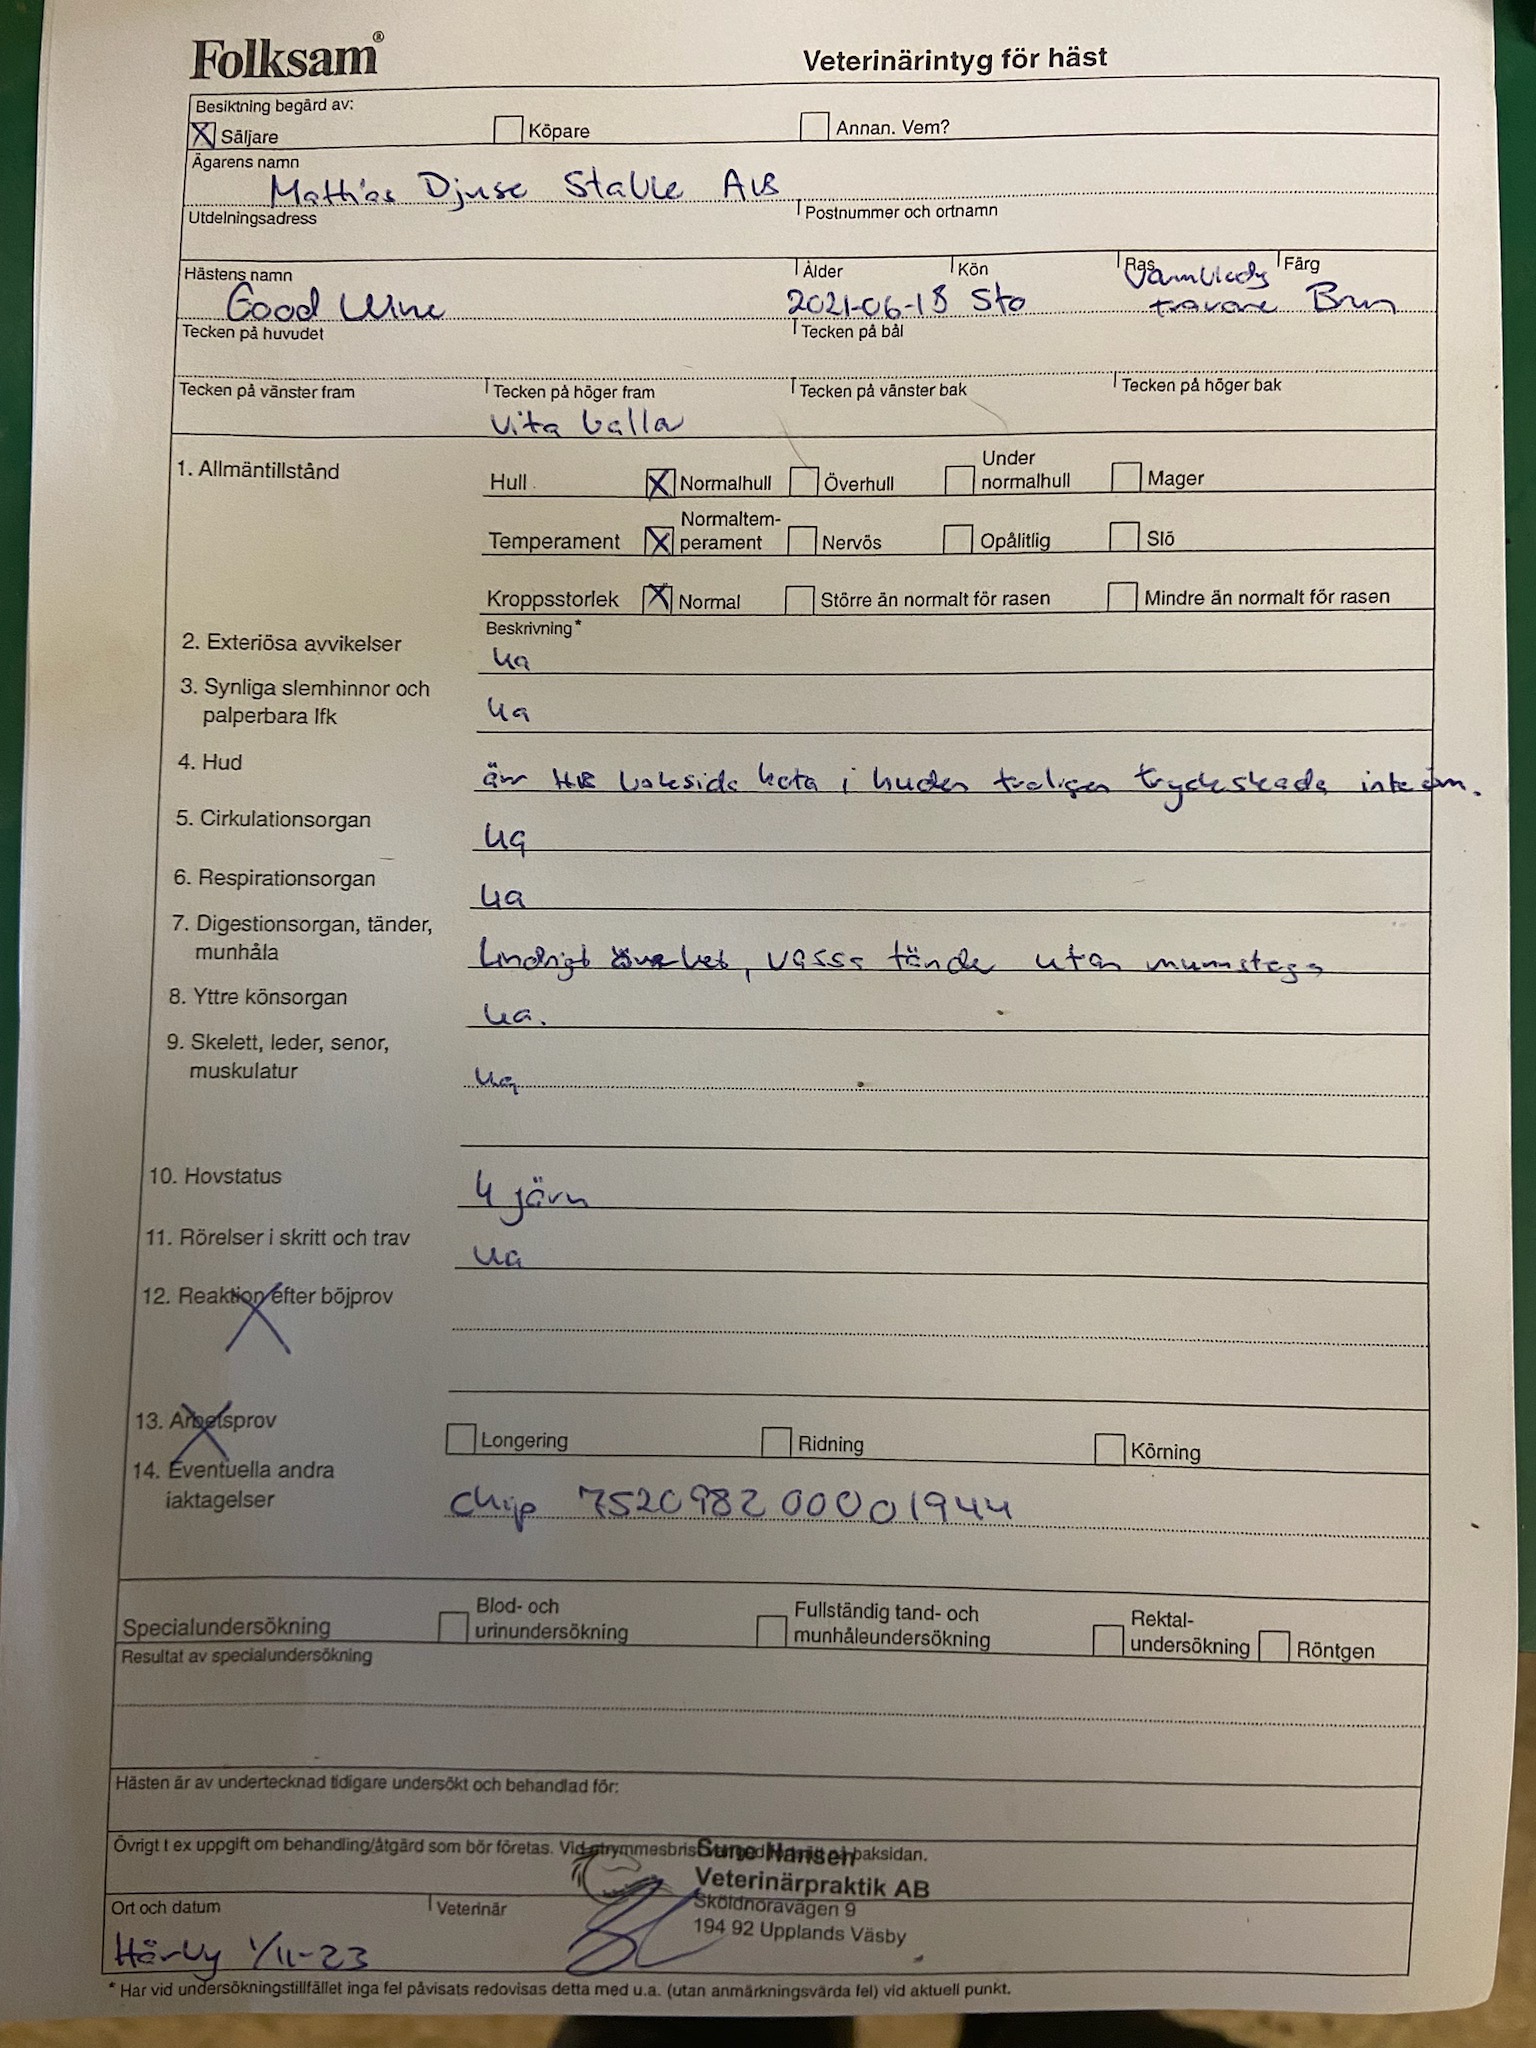 Folksam®
Veterinärintyg för häst
Besiktning begärd av:
X Säljare Köpare Annan. Vem?
Ägarens namn
Mattias Djuse Stable AB
Utdelningsadress Postnummer och ortnamn
Hästens namn Ålder Kön Ras Färg
Good Wine 2021-06-18 Sto Varmblodig travare Brun
Tecken på huvudet Tecken på bål
Tecken på vänster fram Tecken på höger fram Tecken på vänster bak Tecken på höger bak
vita ballar
1. Allmäntillstånd
Hull X Normalhull Överhull Under normalhull Mager
Temperament X Normaltem-perament Nervös Opålitlig Slö
Kroppsstorlek X Normal Större än normalt för rasen Mindre än normalt för rasen
Beskrivning*
2. Exteriösa avvikelser ua
3. Synliga slemhinnor och
palperbara lfk ua
4. Hud ärr HB baksida kota i huden troligen tryckskada inte öm.
5. Cirkulationsorgan ua
6. Respirationsorgan ua
7. Digestionsorgan, tänder,
munhåla Lindrigt överbet, vassa tänder utan
8. Yttre könsorgan ua.
9. Skelett, leder, senor,
muskulatur ua
10. Hovstatus 4 järn
11. Rörelser i skritt och trav ua
12. Reaktion efter böjprov
13. Arbetsprov Longering Ridning Körning
14. Eventuella andra
iaktagelser chip 752098200001944
Specialundersökning Blod- och urinundersökning Fullständig tand- och munhåleundersökning Rektal-undersökning Röntgen
Resultat av specialundersökning
Hästen är av undertecknad tidigare undersökt och behandlad för:
Övrigt t ex uppgift om behandling/åtgärd som bör företas. Vid utrymmesbrist baksidan.
Sune Hansen
Veterinärpraktik AB
Sköldnoravägen 9
194 92 Upplands Väsby
Ort och datum Veterinär
Härby 1/11-23
* Har vid undersökningstillfället inga fel påvisats redovisas detta med u.a. (utan anmärkningsvärda fel) vid aktuell punkt.